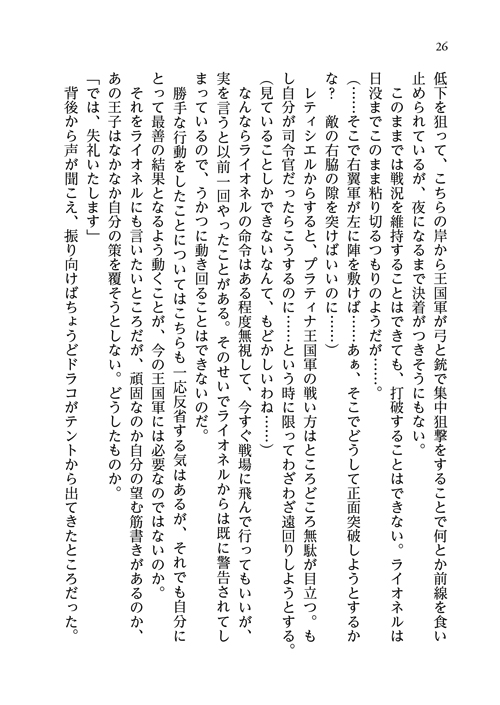 26
低下を狙って、こちらの岸から王国軍が弓と銃で集中狙撃をすることで何とか前線を食い
止められているが、夜になるまで決着がつきそうにもない。
このままでは戦況を維持することはできても、打破することはできない。ライオネルは
日没までこのまま粘り切るつもりのようだが……。
(……そこで右翼軍が左に陣を敷けば……あぁ、そこでどうして正面突破しようとするか
な? 敵の右脇の隙を突けばいいのに……)
レティシエルからすると、プラティナ王国軍の戦い方はところどころ無駄が目立つ。も
し自分が司令官だったらこうするのに……という時に限ってわざわざ遠回りしようとする。
(見ていることしかできないなんて、もどかしいわね……)
なんならライオネルの命令はある程度無視して、今すぐ戦場に飛んで行ってもいいが、
実を言うと以前一回やったことがある。そのせいでライオネルからは既に警告されてし
まっているので、うかつに動き回ることはできないのだ。
勝手な行動をしたことについてはこちらも一応反省する気はあるが、それでも自分に
とって最善の結果となるよう動くことが、今の王国軍には必要なのではないのか。
それをライオネルにも言いたいところだが、頑固なのか自分の望む筋書きがあるのか、
あの王子はなかなか自分の策を覆そうとしない。どうしたものか。
「では、失礼いたします」
背後から声が聞こえ、振り向けばちょうどドラコがテントから出てきたところだった。